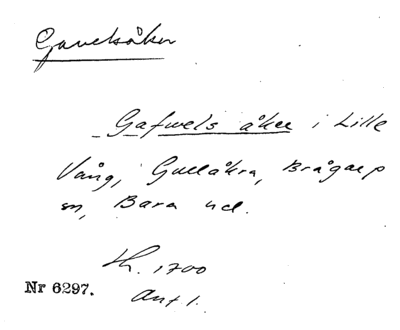 Gavelsåker
Gafwels åker i Lille
Vång, Gullåkra, Brågarp
sn, Bara hd.
Lh. 1700
Nr 6297.
Ant 1.